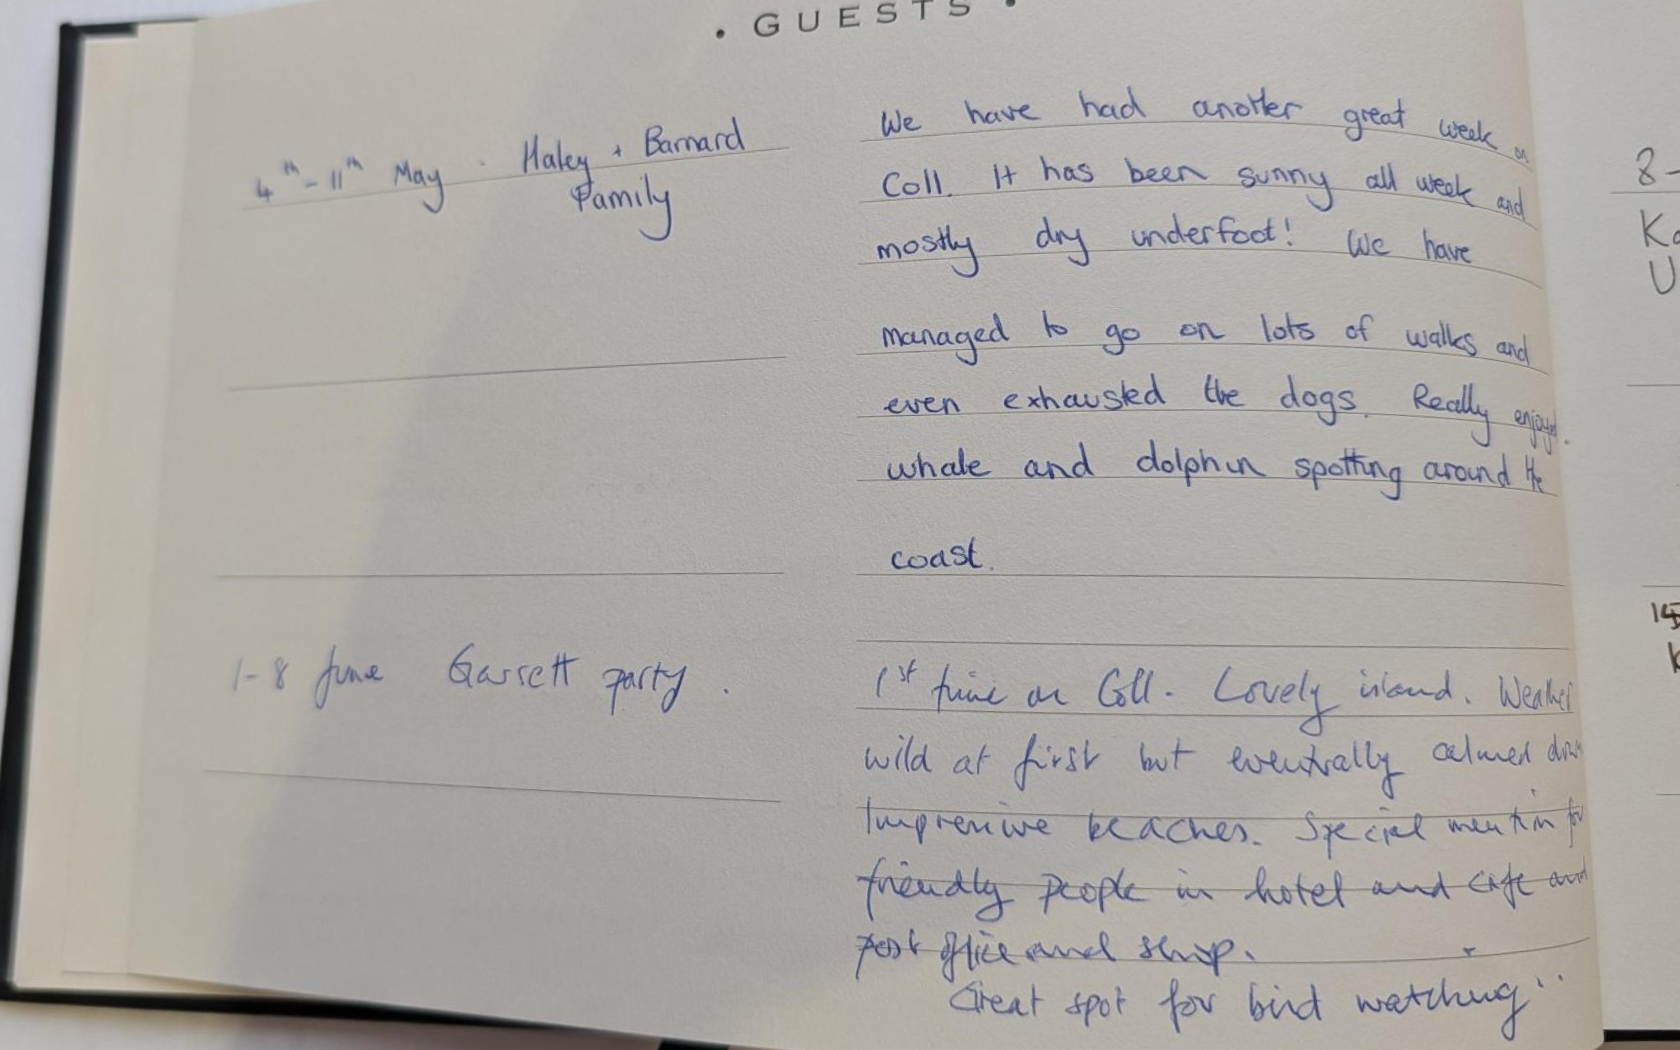 • GUESTS •
4th - 11th May · Haley + Barnard
Family
We have had another great week on
Coll. It has been sunny all week and
mostly dry underfoot! We have
managed to go on lots of walks and
even exhausted the dogs. Really enjoyed
whale and dolphin spotting around the
coast.
1-8 June Garrett party.
1st time on Coll. Lovely island. Weather
wild at first but eventually calmed down
Impressive beaches. Special mention for
friendly people in hotel and cafe and
post office and shop.
Great spot for bird watching
8-
Ka
U
15
K